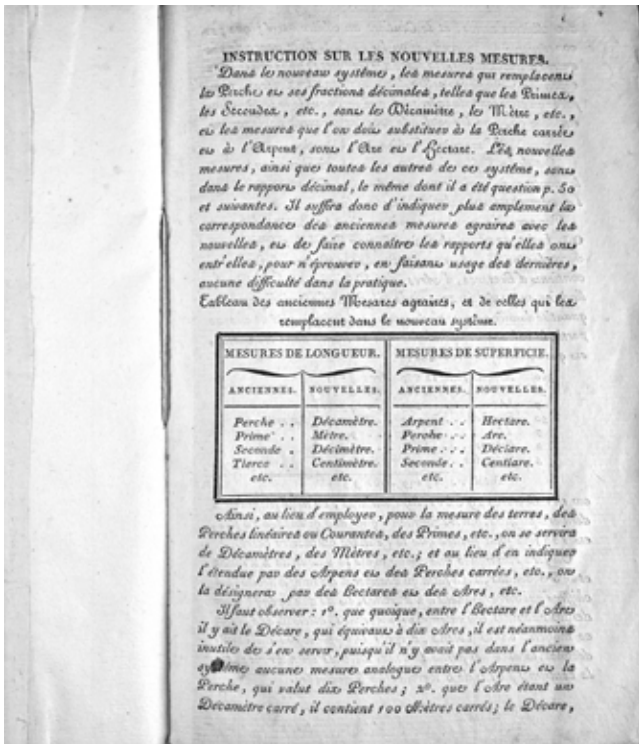 INSTRUCTION SUR LES NOUVELLES MESURES.
Dans le nouveau système, les mesures qui remplacent
la Perche et ses fractions décimales, telles que les Primes,
les Secondes, etc., sont le Décamètre, le Mètre, etc.,
et les mesures que l'on doit substituer à la Perche carrée
et à l'Arpent, sont l'Are et l'Hectare. Les nouvelles
mesures, ainsi que toutes les autres de ce système, sont
dans le rapport décimal, le même dont il a été question p. 50
et suivantes. Il suffira donc d'indiquer plus amplement la
correspondance des anciennes mesures agraires avec les
nouvelles, et de faire connoître les rapports qu'elles ont
entr'elles, pour n'éprouver, en faisant usage des dernières,
aucune difficulté dans la pratique.
Tableau des anciennes Mesures agraires, et de celles qui les
remplacent dans le nouveau système.
MESURES DE LONGUEUR. MESURES DE SUPERFICIE.
ANCIENNES. NOUVELLES. ANCIENNES. NOUVELLES.
Perche . . Décamètre. Arpent . . Hectare.
Prime . . Mètre. Perche . . Are.
Seconde . Décimètre. Prime . . . Déciare.
Tierce . . Centimètre. Seconde . . Centiare.
etc. etc. etc. etc.
Ainsi, au lieu d'employer, pour la mesure des terres, des
Perches linéaires ou Courantes, des Primes, etc., on se servira
de Décamètres, des Mètres, etc.; et au lieu d'en indiquer
l'étendue par des Arpens et des Perches carrées, etc., on
la désignera par des Hectares et des Ares, etc.
Il faut observer : 1°. que quoique, entre l'Hectare et l'Are
il y ait le Décare, qui équivaut à dix Ares, il est néanmoins
inutile de s'en servir, puisqu'il n'y avait pas dans l'ancien
système aucune mesure analogue entre l'Arpent et la
Perche, qui valut dix Perches ; 2°. que l'Are étant un
Décamètre carré, il contient 100 Mètres carrés; le Décare,